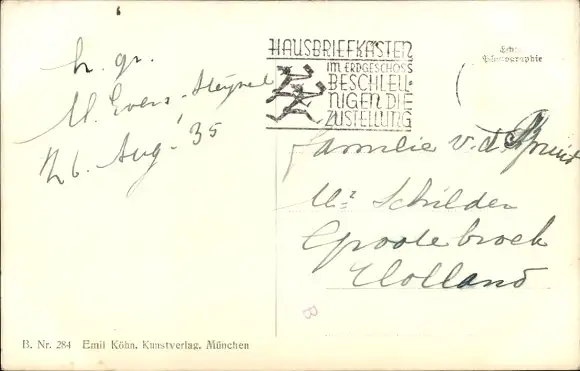 h. gr.
M. Evers-Heynel
26. Aug. 35
HAUSBRIEFKÄSTEN
IM ERDGESCHOSS
BESCHLEU-
NIGEN DIE
ZUSTELLUNG
Echte
Photographie
Familie v. d.
Schilder
Grootebroek
Holland
B
B. Nr. 284 Emil Köhn, Kunstverlag, München